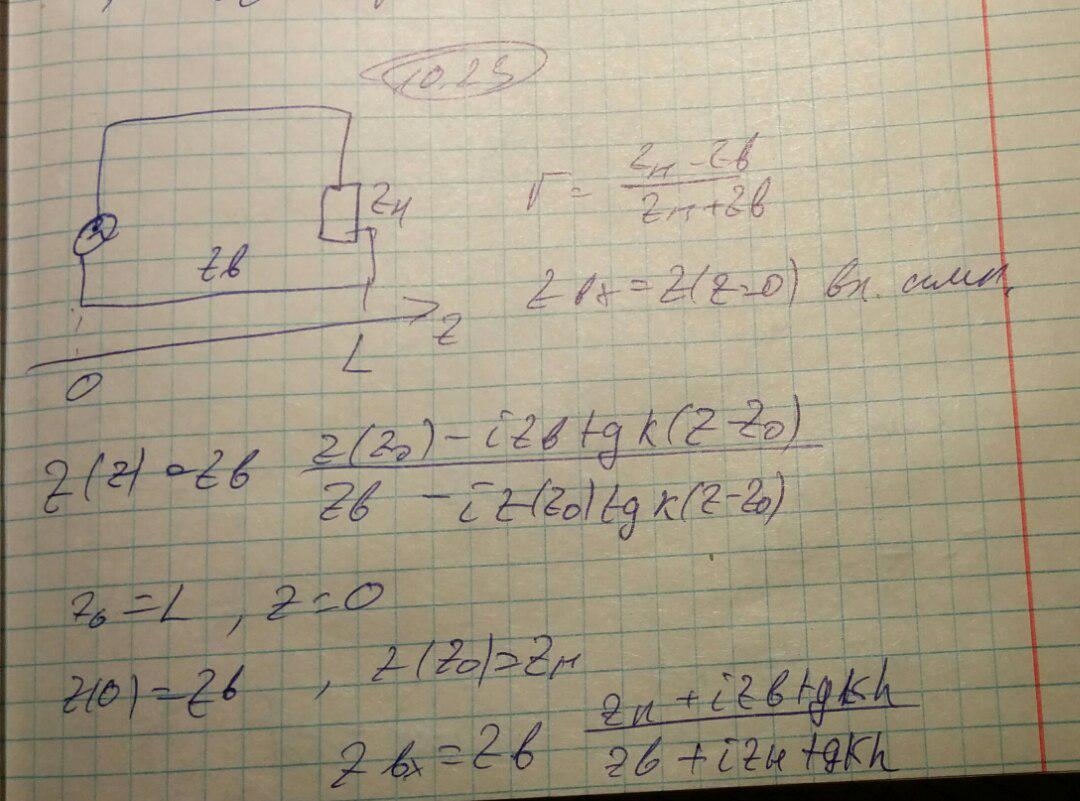 10.25
Zн
Zв
Z
0
L
Γ = (Zн - Zв) / (Zн + Zв)
Z вх = Z(Z=0) вх.
Z(z) = Zв (Z(Z₀) - i Zв tg k(Z-Z₀)) / (Zв - i Z(Z₀) tg k(Z-Z₀))
z₀ = L , Z=0
Z(0) = Zв , Z(Z₀) = Zн
Z вх = Zв (Zн + i Zв tg kh) / (Zв + i Zн tg kh)